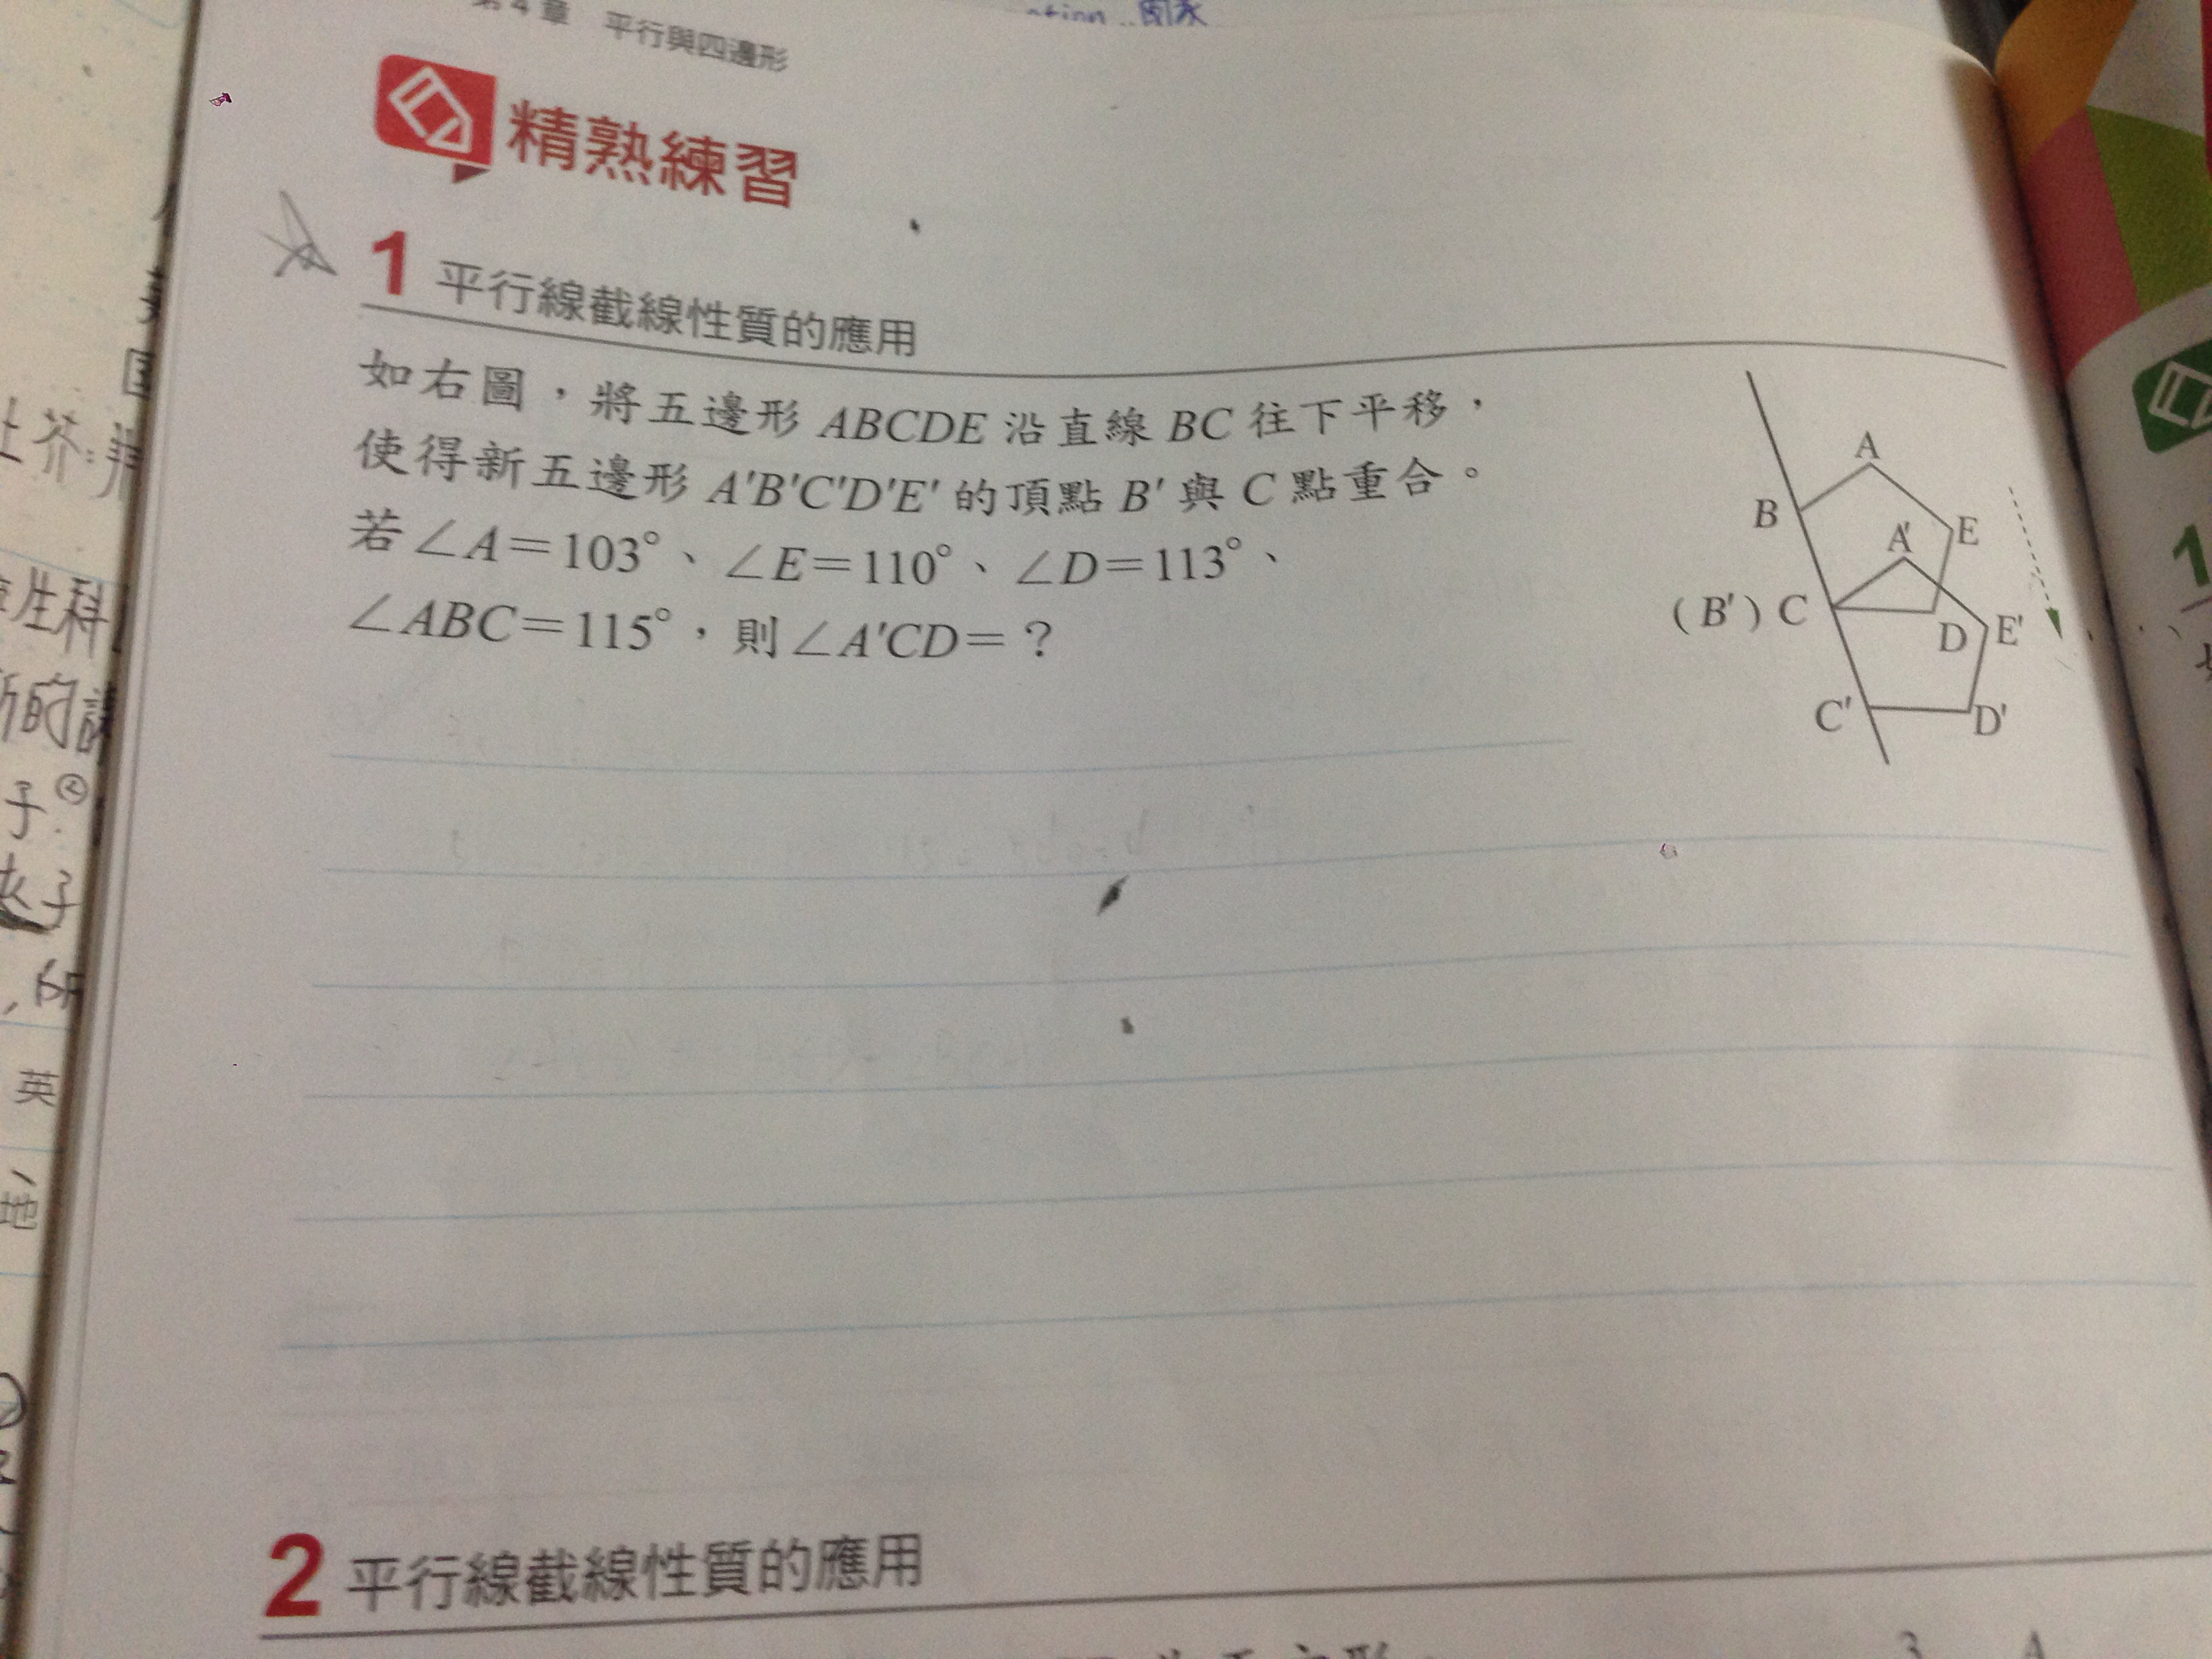 第4章 平行與四邊形
精熟練習
1 平行線截線性質的應用
如右圖，將五邊形 ABCDE 沿直線 BC 往下平移，
使得新五邊形 A'B'C'D'E' 的頂點 B' 與 C 點重合。
若∠A＝103°、∠E＝110°、∠D＝113°、
∠ABC＝115°，則∠A'CD＝？
A
B
E
A'
(B') C
D
E'
C'
D'
2 平行線截線性質的應用
3
A
1
英
地